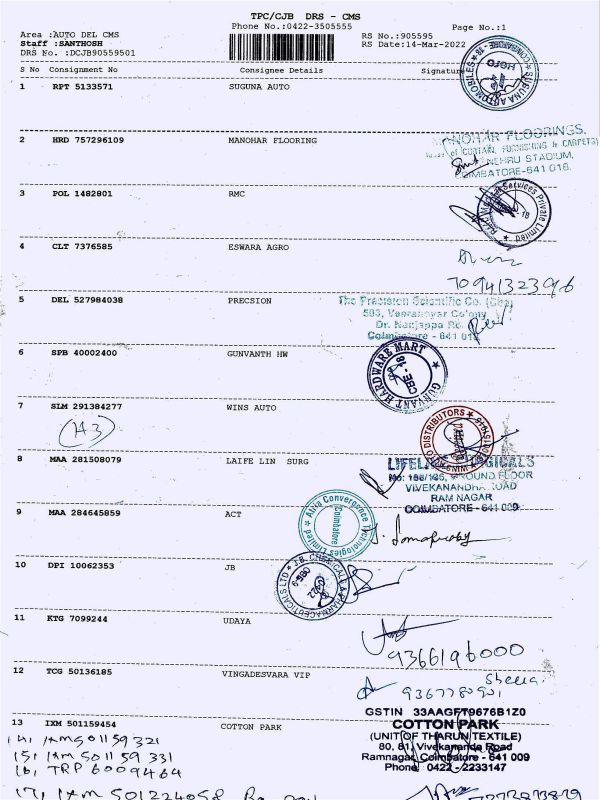 TPC/CJB DRS - CMS
Phone No.:0422-3505555 Page No.:1
Area :AUTO DEL CMS RS No.:905595
Staff :SANTHOSH RS Date:14-Mar-2022
DRS No. :DCJB90559501
S No Consignment No Consignee Details Signature
1 RPT 5133571 SUGUNA AUTO
SUGUNA AUTOMOBILES * COIMBATORE - 18
2 HRD 757296109 MANOHAR FLOORING
MANOHAR FLOORINGS,
of CURTAIN, FURNISHING & CARPETS)
NEHRU STADIUM,
COIMBATORE-641 018.
3 POL 1482801 RMC
Services Private Limited
18
4 CLT 7376585 ESWARA AGRO
7094132396
5 DEL 527984038 PRECSION
The Precision Scientific Co. (Cbe)
583, Veeranayar Colony
Dr. Nanjappa Rd.
Coimbatore - 641 018
6 SPB 40002400 GUNVANTH HW
GUNVANT HARDWARE MART
CBE-18
7 SLM 291384277 WINS AUTO
WINS AUTO DISTRIBUTORS
(H3)
8 MAA 281508079 LAIFE LIN SURG
LIFELINE SURGICALS
GROUND FLOOR
VIVEKANANDHA ROAD
RAM NAGAR
COIMBATORE - 641 009
9 MAA 284645859 ACT
Atria Convergence Technologies Limited
Coimbatore
10 DPI 10062353 JB
J.B. CHEMICALS & PHARMACEUTICALS LTD
11 KTG 7099244 UDAYA
9366196000
12 TCG 50136185 VINGADESVARA VIP
Sheela
9367780501
GSTIN 33AAGFT9676B1Z0
13 IXM 501159454 COTTON PARK
COTTON PARK
(UNIT OF THARUN TEXTILE)
80, 81, Vivekananda Road
Ramnagar, Coimbatore - 641 009
Phone 0422 - 2233147
14, IXM 501159321
15, IXM 501159 331
16, TRP 6009464
17, IXM 501224058